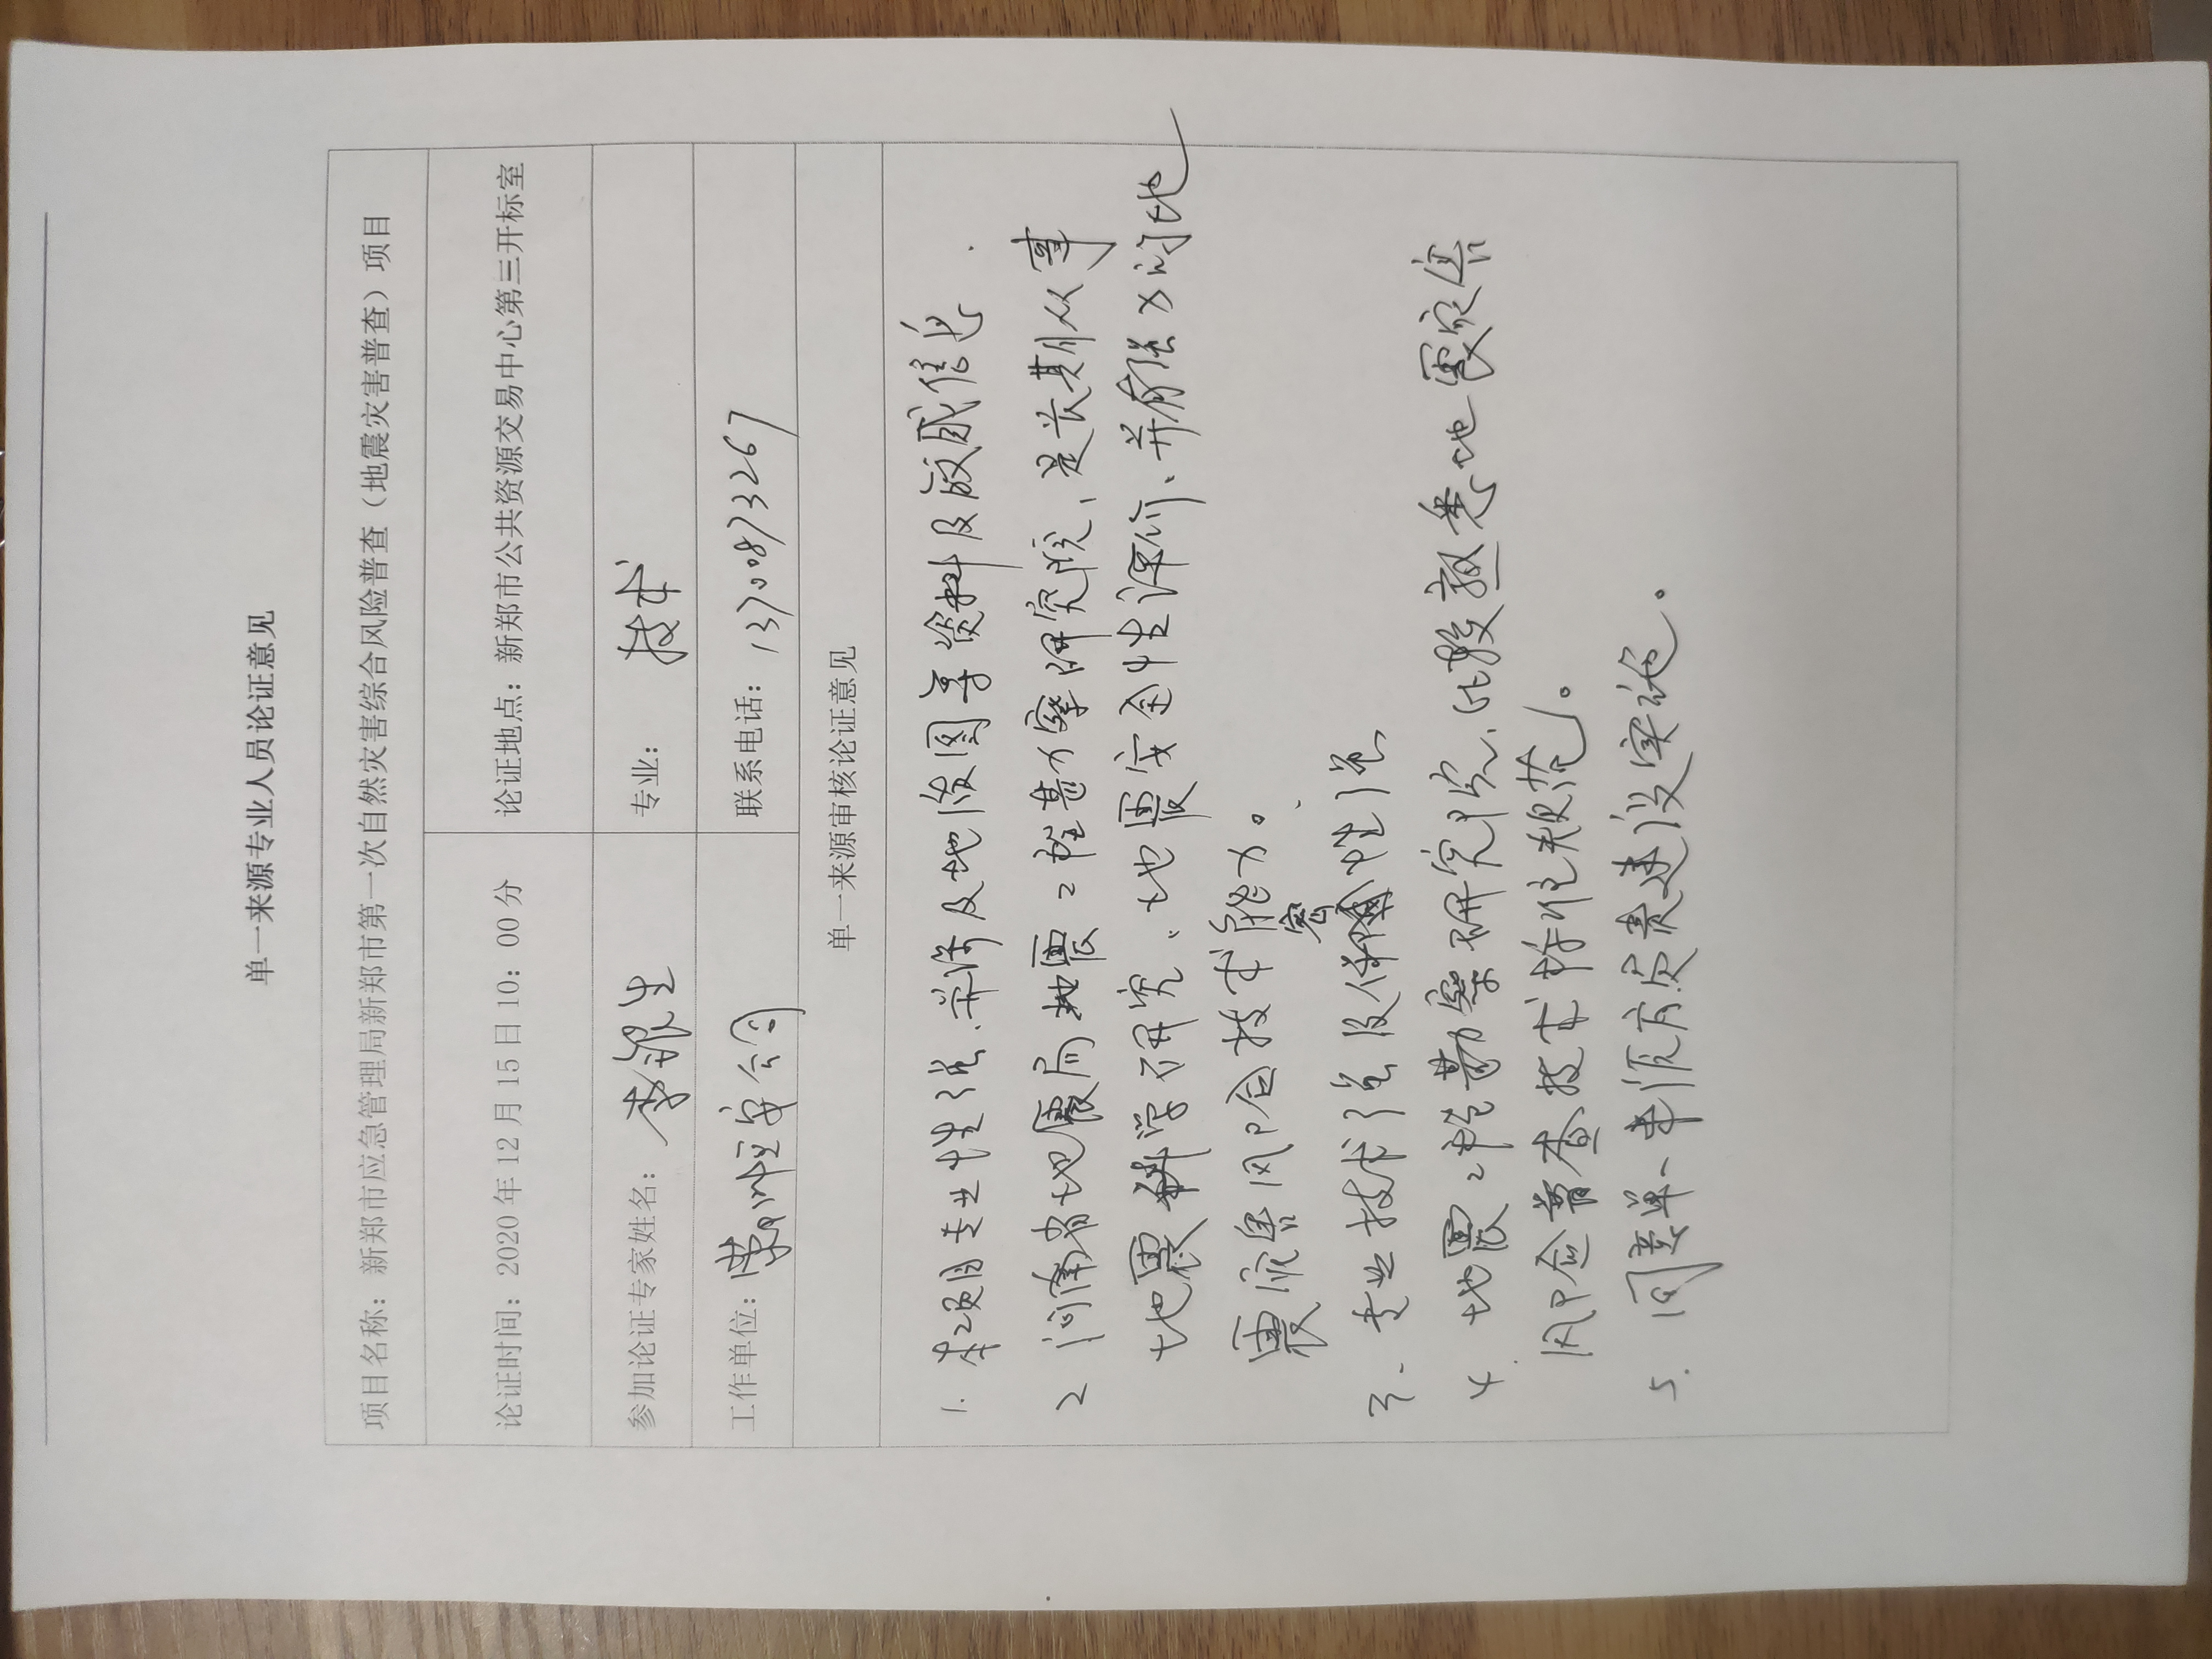 单一来源专业人员论证意见
项目名称：新郑市应急管理局新郑市第一次自然灾害综合风险普查（地震灾害普查）项目
论证时间：2020年12月15日10：00分 论证地点：新郑市公共资源交易中心第三开标室
参加论证专家姓名：李银生 专业：技术
工作单位：郑州宏安公司 联系电话：13700873267
单一来源审核论证意见
1. 本项目专业性强、并涉及地形图等资料及敏感信息.
2 河南省地震局地震工程勘察研究院、是长期从事
地震科学研究、地震安全性评价、并有强大的地
震灾害风险技术能力。
3、专业技术强及保密性强
4. 地震工程勘察研究院、比较熟悉地震灾害
风险普查技术标准规范。
5. 同意单一来源方质建设实施。